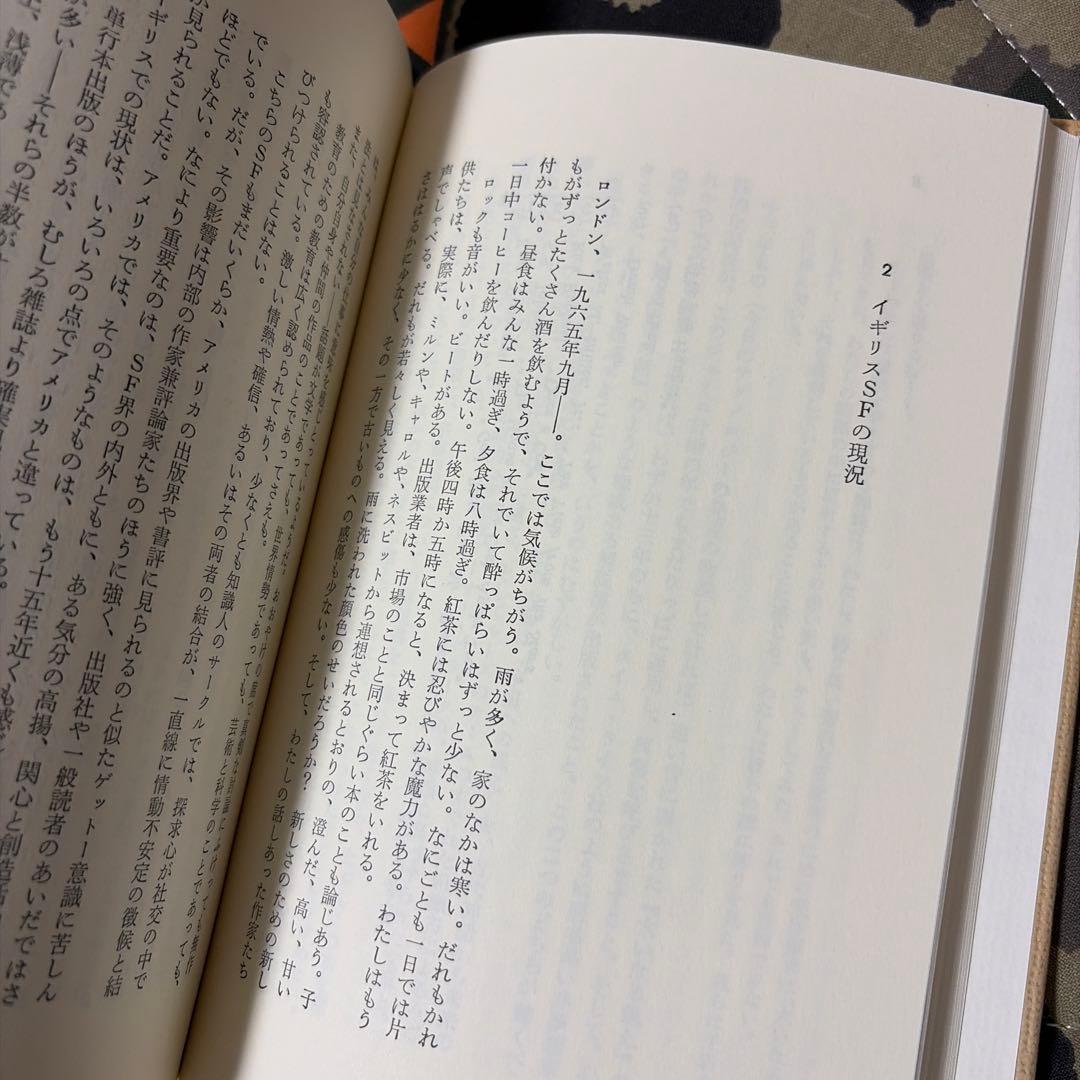 2 イギリスSFの現況
ロンドン、一九六五年九月――。ここでは気候がちがう。雨が多く、家のなかは寒い。だれもかれ
もがずっとたくさん酒を飲むようで、それでいて酔っぱらいはずっと少ない。なにごとも一日では片
付かない。昼食はみんな一時過ぎ、夕食は八時過ぎ。紅茶には忍びやかな魔力がある。わたしはもう
一日中コーヒーを飲んだりしない。午後四時か五時になると、決まって紅茶をいれる。
ロックも音がいい。ビートがある。出版業者は、市場のことと同じぐらい本のことも論じあう。子
供たちは、実際に、ミルンや、キャロルや、ネスビットから連想されるとおりの、澄んだ、高い、甘い
声でしゃべる。だれもが若々しく見える。雨に洗われた顔色のせいだろうか？ 新しさのための新し
さははるかに少なく、その一方で古いものへの感傷も少ない。そして、わたしの話しあった作家たち
また、自分自身や仲間の作品のことであってさえも。
教育のための教育は広く認められており、少なくとも知識人のサークルでは、探求心が社交の中で
も容認されている。激しい情熱や確信、あるいはその両者の結合が、一直線に情動不安定の徴候と結
びつけられることはない。
こちらのSFもまだいくらか、アメリカの出版界や書評に見られるのと似たゲットー意識に苦しん
でいる。だが、その影響は内部の作家兼評論家たちのほうに強く、出版社や一般読者のあいだではさ
ほどでもない。なにより重要なのは、SF界の内外ともに、ある気分の高揚、関心と創造
が見られることだ。アメリカでは、そのようなものは、もう十五年近くも
イギリスでの現状は、いろいろの点でアメリカと違っている。
単行本出版のほうが、むしろ雑誌より確実
が多い――それらの半数が
浅薄であ